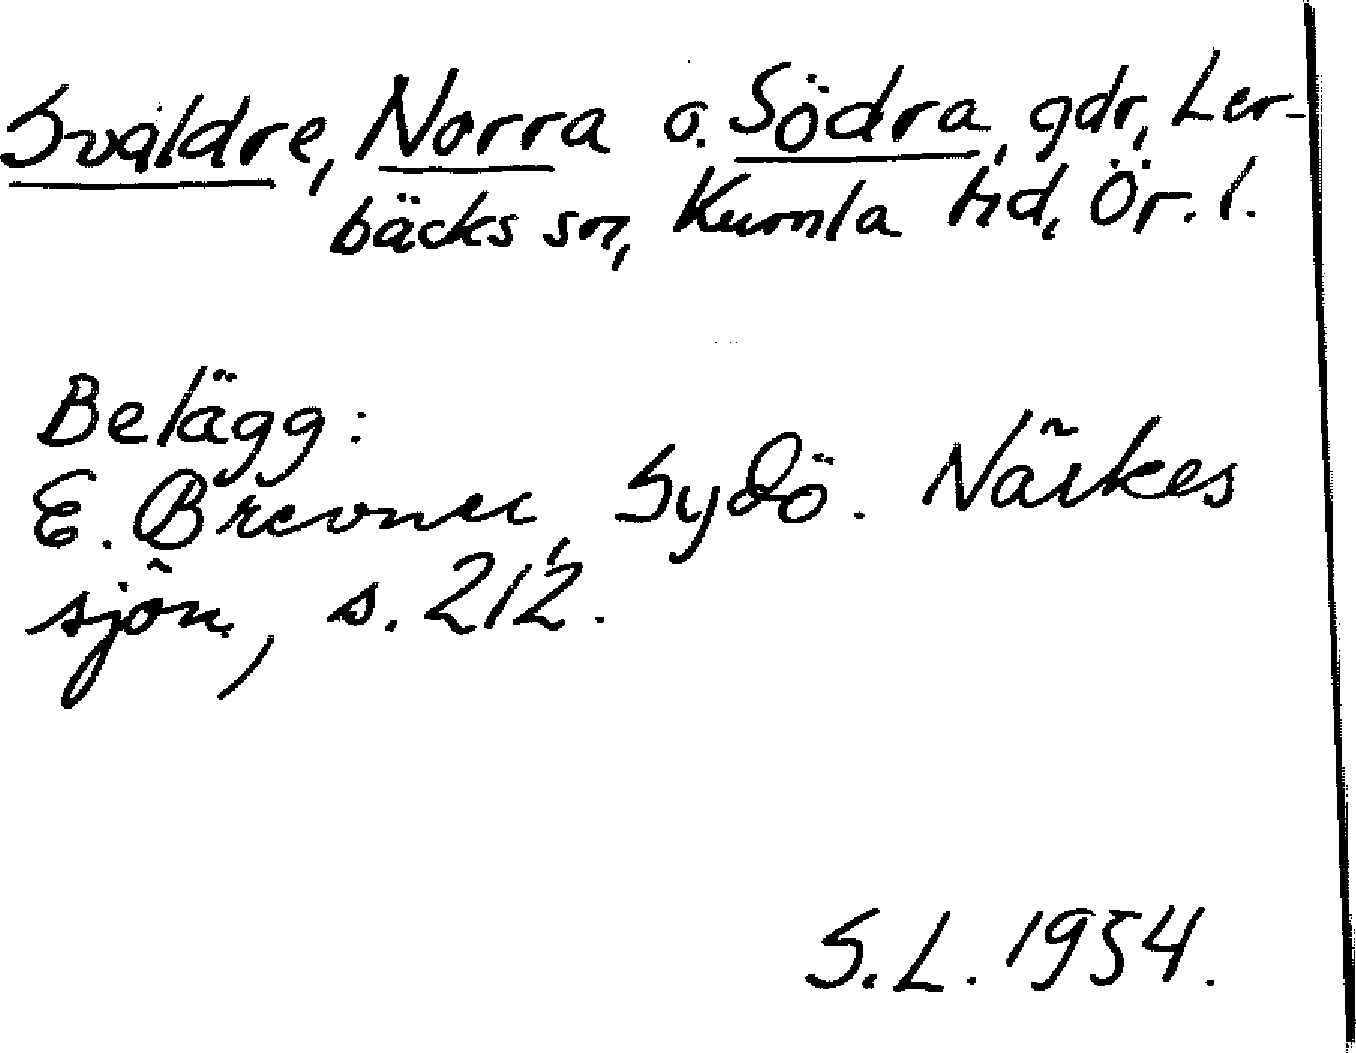 Svaldre, Norra o. Södra, gdr, Ler-
bäcks sn, Kumla hd, Ör. l.
Belägg:
E. Brevner, Sydö. Närkes
sjön, s. 212.
S.L. 1954.